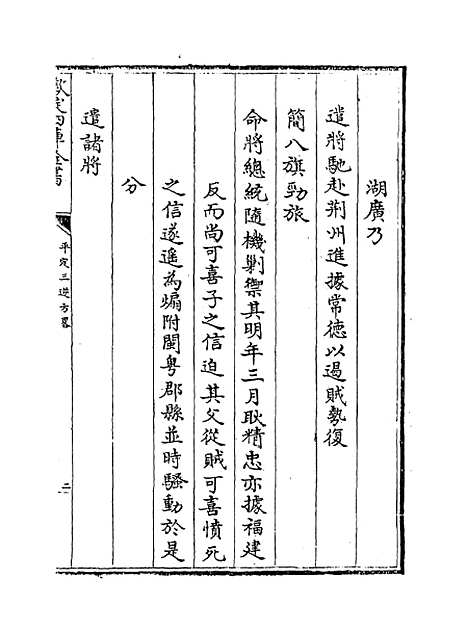 湖廣乃
遣將馳赴荆州進據常德以遏賊勢復
簡八旗勁旅
命將總統隨機剿禦其明年三月耿精忠亦據福建
反而尚可喜子之信迫其父從賊可喜憤死
之信遂遙為煽附閩粤郡縣並時騷動於是
分
遣諸將
欽定四庫全書
平定三逆方畧
二